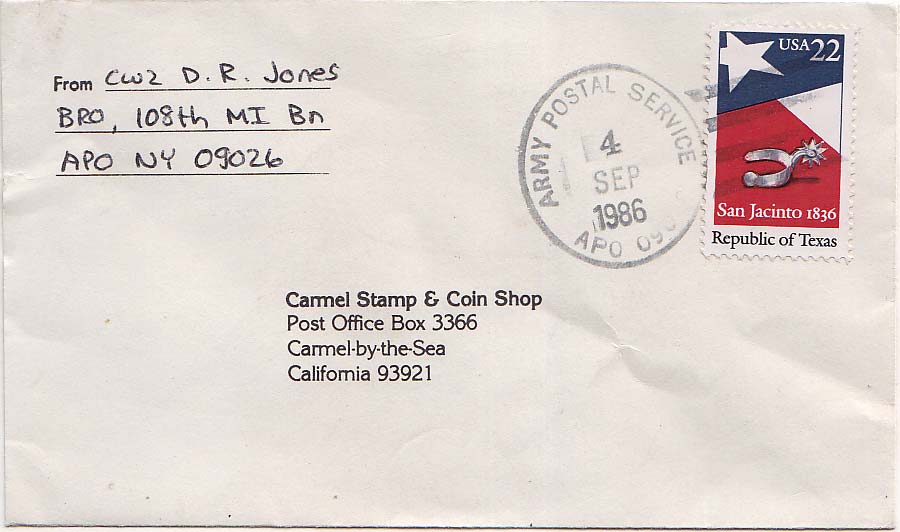 From CW2 D. R. Jones
BRO, 108th MI Bn
APO NY 09026
ARMY POSTAL SERVICE
4
SEP
1986
APO
USA 22
San Jacinto 1836
Republic of Texas
Carmel Stamp & Coin Shop
Post Office Box 3366
Carmel-by-the-Sea
California 93921